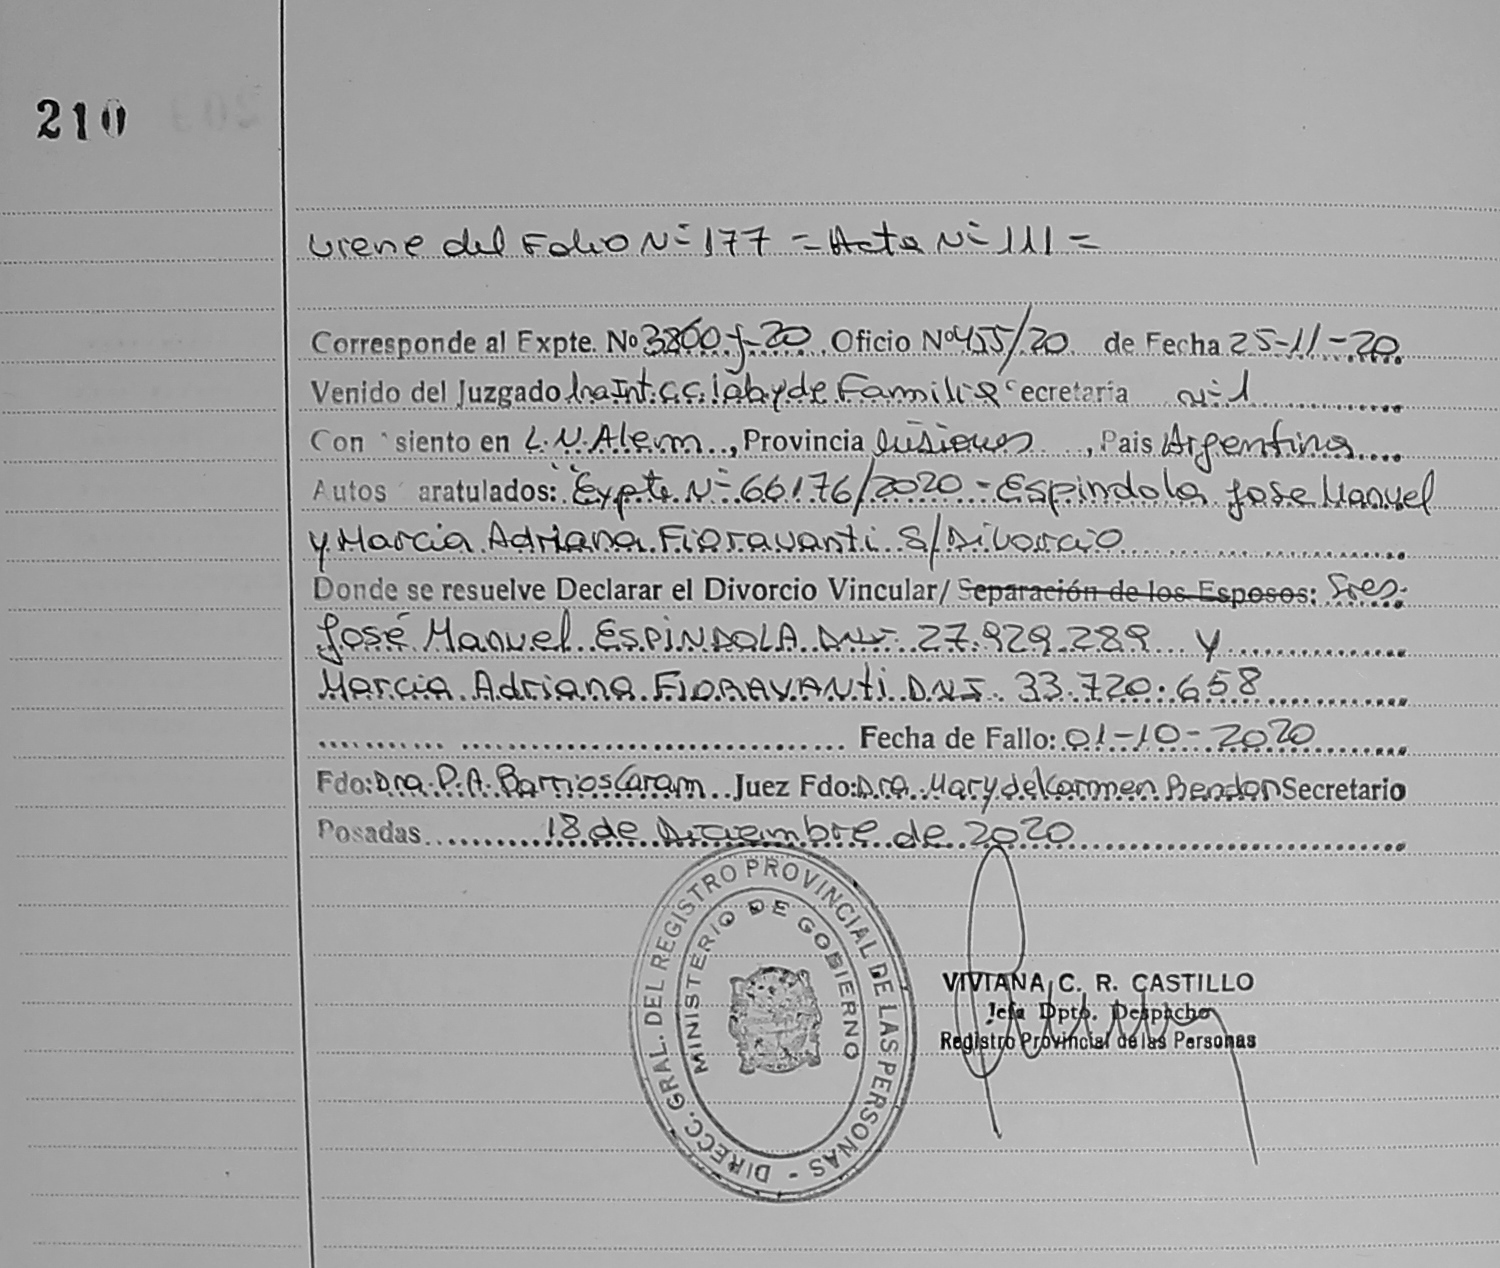 210
viene del Folio Nº 177 = Acta Nº 111 =
Corresponde al Expte. Nº 3860-J-20 Oficio Nº 455/20 de Fecha 25-11-20
Venido del Juzgado 1ra Int. C.C. lab y de Familia ecretaria nº 1
Con siento en L.N. Alem, Provincia Misiones, Pais Argentina
Autos aratulados: Expte. Nº 66176/2020 - Espindola Jose Manuel
y Marcia Adriana Fioravanti S/Divorcio
Donde se resuelve Declarar el Divorcio Vincular/ Separación de los Esposos: Sres.
José Manuel ESPINDOLA DNI. 27.929.289 y
Marcia Adriana FIORAVANTi DNI. 33.720.658
Fecha de Fallo: 01-10-2020
Fdo: Dra. P.A. Barrios Caram Juez Fdo: Dra. Mary del Carmen Secretario
Posadas 18 de Diciembre de 2020
DIRECC. GRAL. DEL REGISTRO PROVINCIAL DE LAS PERSONAS -
MINISTERIO DE GOBIERNO
VIVIANA C. R. CASTILLO
Jefa Dpto. Despacho
Registro Provincial de las Personas